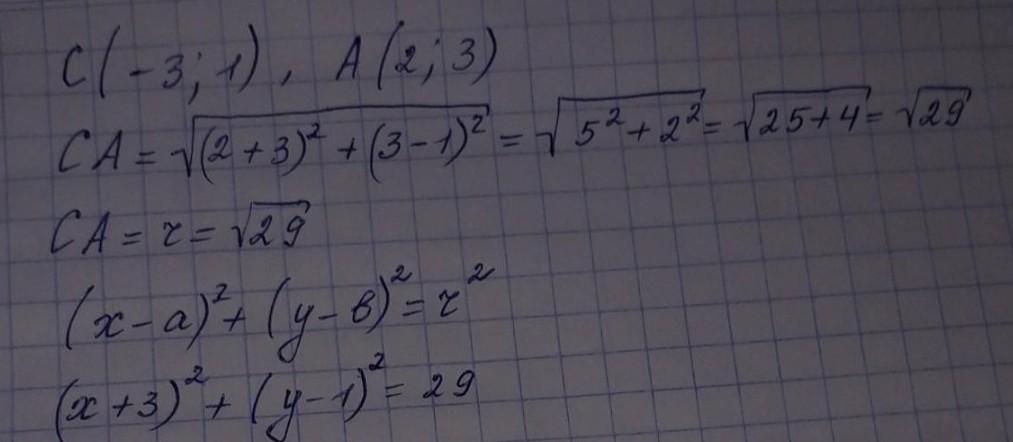 C(-3; 1), A(2; 3)
CA = √((2+3)² + (3-1)²) = √(5² + 2²) = √(25+4) = √29
CA = r = √29
(x-a)² + (y-b)² = r²
(x+3)² + (y-1)² = 29